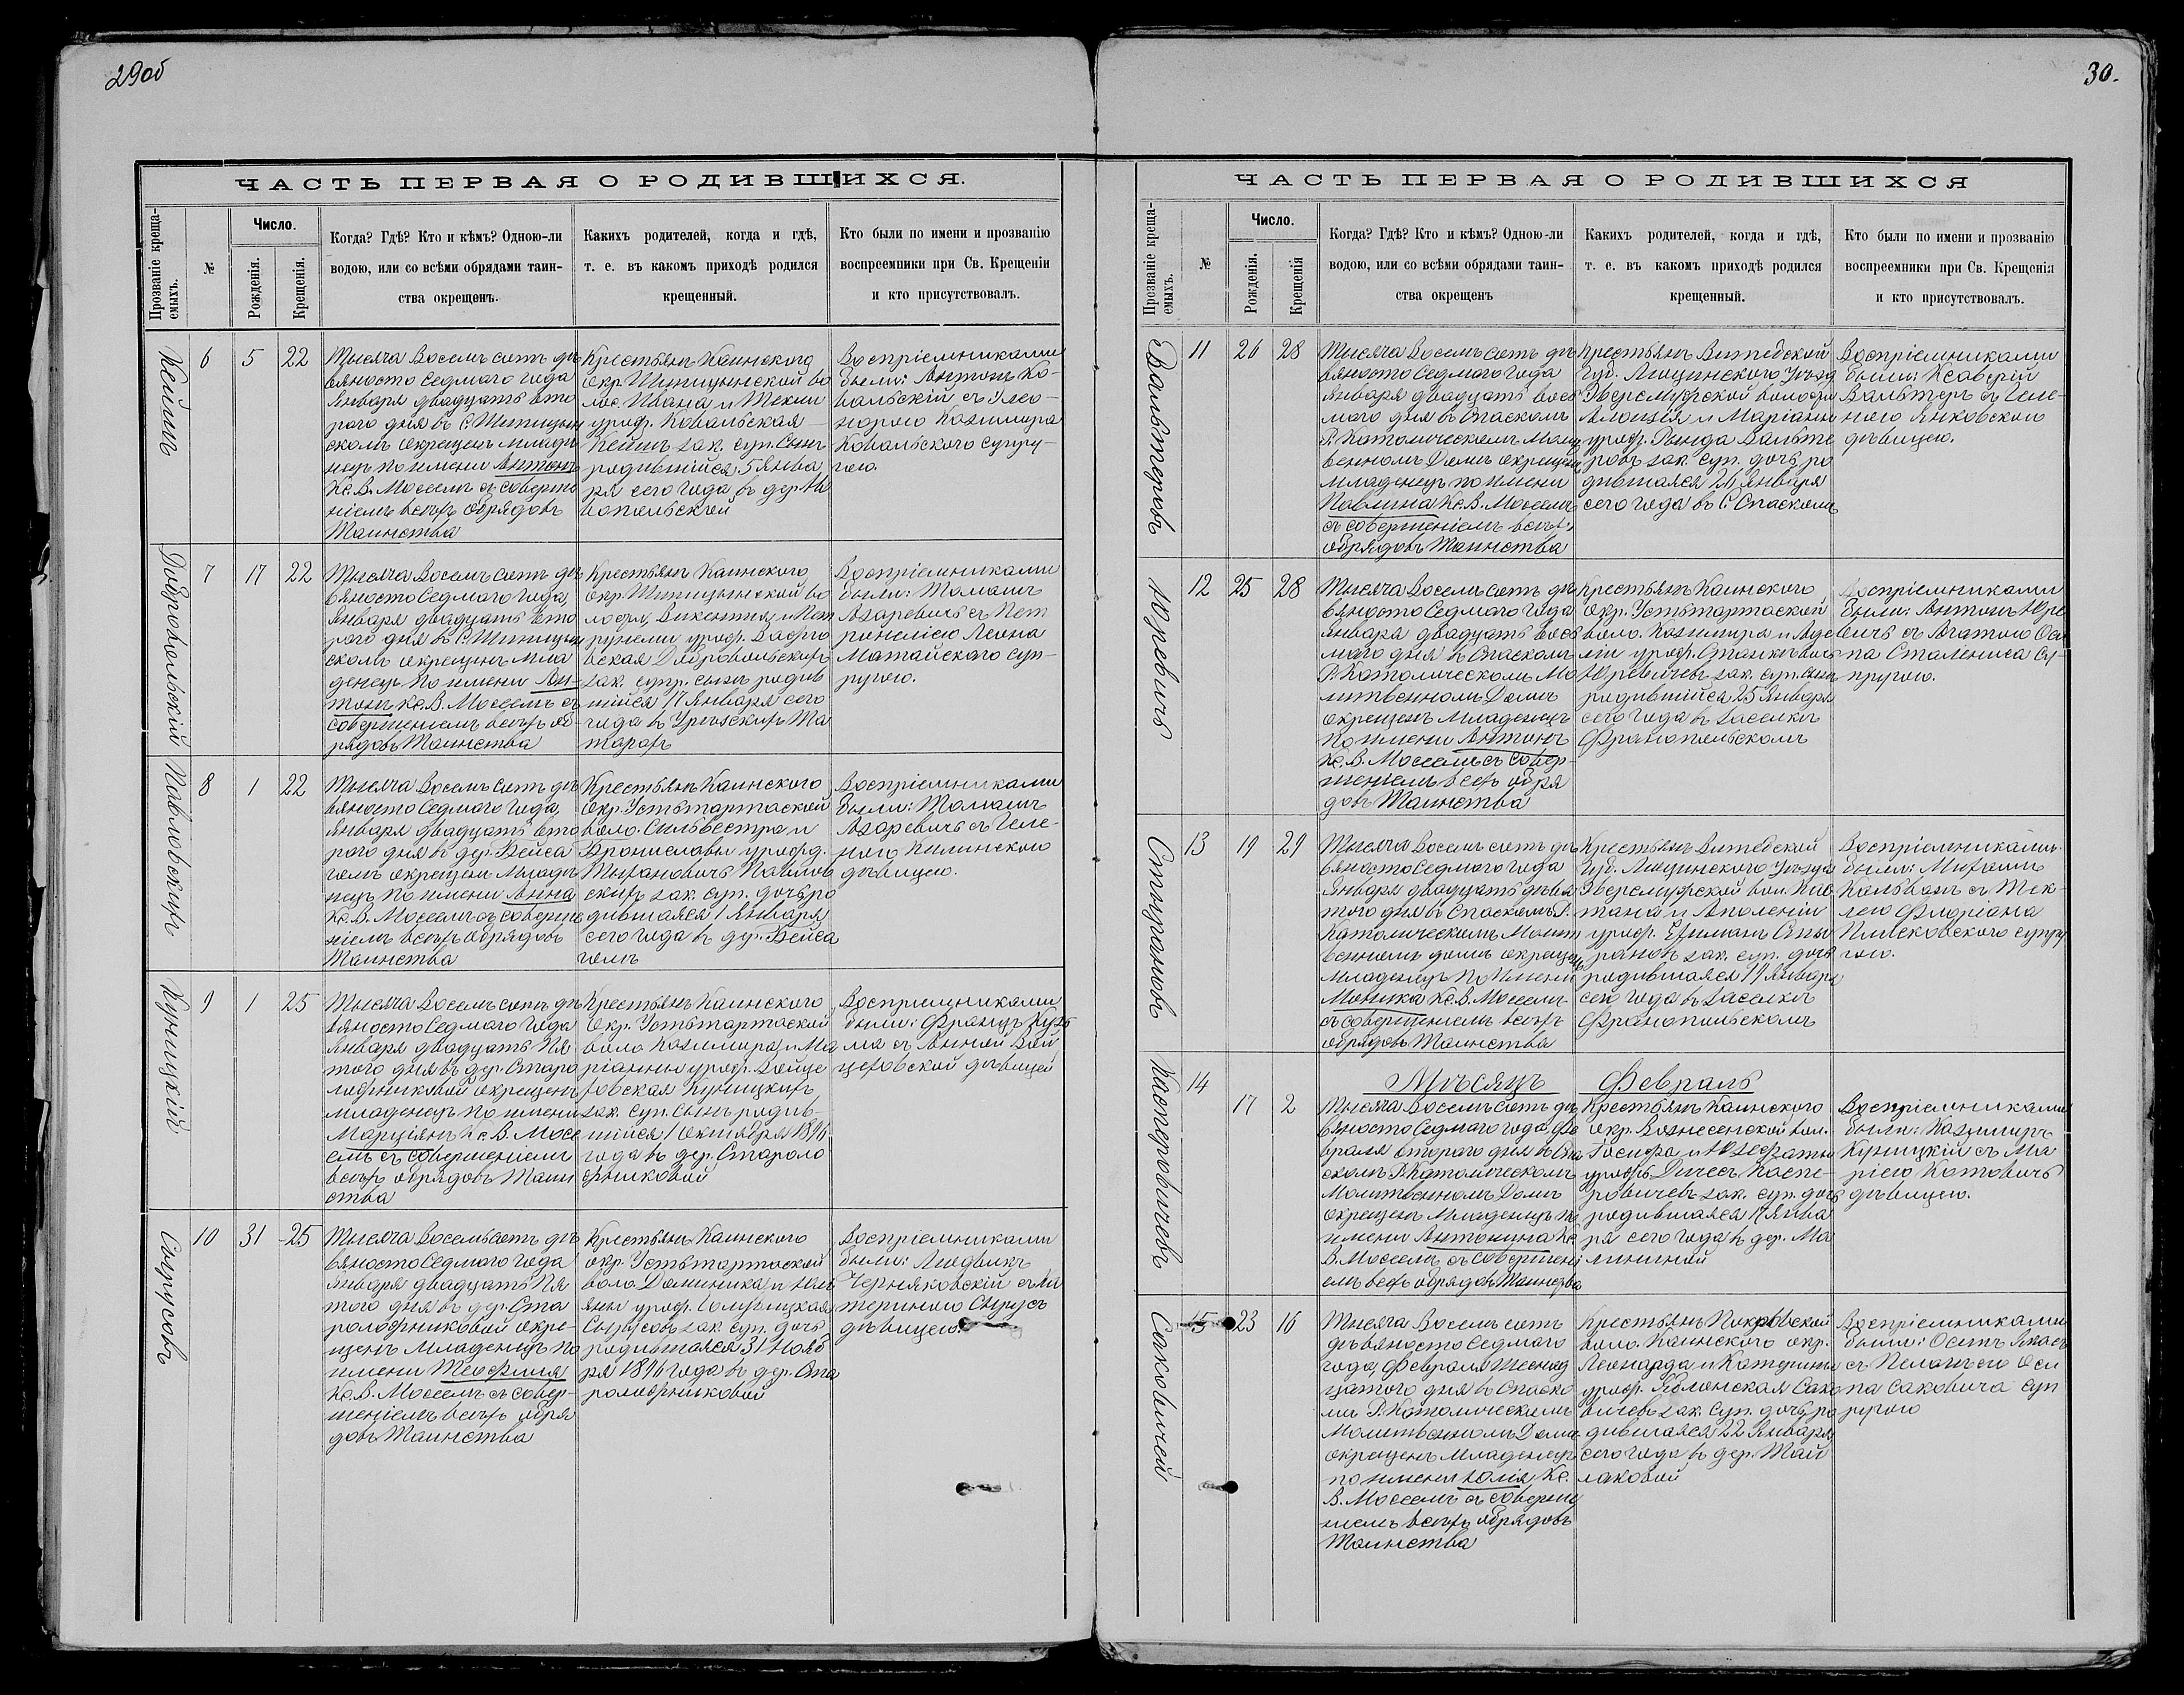 29об
ЧАСТЬ ПЕРВАЯ О РОДИВШИХСЯ.
Прозваніе креща-
емыхъ.
№
Число.
Рожденія.
Крещенія.
Когда? Гдѣ? Кто и кѣмъ? Одною-ли
водою, или со всѣми обрядами таин-
ства окрещенъ.
Какихъ родителей, когда и гдѣ,
т. е. въ какомъ приходѣ родился
крещенный.
Кто были по имени и прозванію
воспреемники при Св. Крещеніи
и кто присутствовалъ.
Кеймъ
6 5 22
Тысяча Восемъ сотъ дѣ
вяносто Седмаго года
Января двадцать вто
рого дня въ С. Шипицын
скомъ окрещенъ младе
нецъ по имени Антонъ
Кс. В. Моссемъ съ соверше
ніемъ всѣхъ обрядовъ
Таинства
Крестьянъ Каинского
окр. Шипицынской во
лос. Ивана и Теклии
урожд. Ковальская
Кеймъ зак. суп. Сынъ
родившійся 5 Янва
ря сего года въ дер.
Воспріемниками
были: Антонъ Ко-
вальскій съ Элео-
норою Казимира
Ковальского супру-
гою.
Добровольскій
7 17 22
Тысяча Восемъ сотъ дѣ
вяносто Седмаго года,
Января двадцать вто
рого дня въ С. Шипицын
скомъ окрещенъ мла
денецъ по имени Ан-
тонъ Кс. В. Моссемъ съ
совершеніемъ всѣхъ об-
рядовъ Таинства
Крестьянъ Каинского
окр. Шипицынской во
лости, Викентія и Пет
рунели урож.
Добровольскихъ
зак. супр. сынъ родив
шійся 17 Января сего
года въ Урюзскихъ Та
тарахъ
Воспріемниками
были: Томашъ
Азаревичъ съ Пет
ронелією Леона
Матайского суп-
ругою.
Павловскихъ
8 1 22
Тысяча Восемъ сотъ дѣ
вяносто Седмаго года,
Января двадцать вто
рого дня въ дер. Бейса
гомъ окрещенъ младе
нецъ по имени Анна
Кс. В. Моссемъ съ соверше
ніемъ всѣхъ обрядовъ
Таинства
Крестьянъ Каинского
Окр. Устьтартаской
воло. Сильвестра и
Брониславы урожд.
Тыхановичъ Павлов
скихъ зак. суп. дочь ро
дившаяся 1 Января
сего года въ дер. Бейса
гомъ
Воспріемниками
были: Томашъ
Азаревичъ съ Геле-
ною Килинского
дѣвицею.
Куницкій
9 1 25
Тысяча Восемъ сотъ дѣ
вяносто Седмаго года
Января двадцать Пя
того дня въ дер. Старо
окрещенъ
младенецъ по имени
Марціянъ Кс. В. Мосс
емъ съ совершеніемъ
всѣхъ обрядовъ Таин
ства
Крестьянъ Каинского
Окр. Устьтартаской
воло. Казимира и Ма
ріанны урож. Войце
ховская Куницкихъ
зак. суп. Сынъ родив-
шійся 1 Октября 1896
года въ дер. Староло

Воспріемниками
были: Францъ Кузь
ма съ Анной Вой
цеховской дѣвицей
Сырусовъ
10 31 25
Тысяча Восемьсотъ дѣ
вяносто Седмаго года
Января двадцать Пя
того дня въ дер. Ста
окре-
щенъ Младенецъ по
имени Теофилия
Кс. В. Моссемъ съ совер-
шеніемъ всѣхъ обря
довъ Таинства
Крестьянъ Каинского
окр. Устьтартаской
воло. Доминика и Юль
яны урож.
Сырусовъ зак. суп. дочь
родившаяся 31 Нояб
ря 1896 года въ дер. Ста

Воспріемниками
были: Людвикъ
Черняковскій съ Ка
териною Сырусъ
дѣвицею.
30.
ЧАСТЬ ПЕРВАЯ О РОДИВШИХСЯ
Прозваніе креща-
емыхъ.
№
Число.
Рожденія.
Крещенія
Когда? Гдѣ? Кто и кѣмъ? Одною-ли
водою, или со всѣми обрядами таин-
ства окрещенъ
Какихъ родителей, когда и гдѣ,
т. е. въ какомъ приходѣ родился
крещенный.
Кто были по имени и прозванію
воспреемники при Св. Крещенія
и кто присутствовалъ.
Вальтеровъ
11 26 28
Тысяча Восемъ сотъ дѣ
вяносто Седмаго года
Января двадцать вось
маго дня въ Спаскомъ
Р. Католическомъ Молит
венномъ Домѣ окрещенъ
младенецъ по имени
Павлина Кс. В. Моссемъ
съ совершеніемъ всѣхъ
обрядовъ Таинства
Крестьянъ Витебской
Губ. Люцинского Уѣзд
Эверсмуйской волости
Алоизія и Маріанны
урож. Рында Вальте
ровъ зак. суп. дочь ро
дившаяся 26 Января
сего года въ С. Спаскомъ
Воспріемниками
были: Ксаверій
Вальтеръ съ Геле-
ною Янковского
дѣвицею.
Юревичъ
12 25 28
Тысяча Восемъ сотъ дѣ
вяносто Седмаго года
Января двадцать вось
маго дня въ Спаскомъ
Р. Католическомъ Мо
литвенномъ Домѣ
окрещенъ Младенецъ
по имени Антонъ
Кс. В. Моссемъ съ совер-
шеніемъ всѣхъ обря
довъ Таинства
Крестьянъ Каинского
Окр. Устьтартаской
воло. Казимира и Аде
лии урож. Станкѣвичъ
Юревичевъ зак. суп. сынъ
родившійся 25 Января
сего года въ заселкѣ
Францпольскомъ
Воспріемниками
были: Антонъ Юре
вичъ съ Агатою Оси
па Сталениса су-
пругою.
Спыроновъ
13 19 29
Тысяча Восемъ сотъ дѣ
вяносто Седмаго года
Января двадцать девя
того дня въ Спаскомъ Р.
Католическомъ Молит
венномъ домѣ окрещенъ
младенецъ по имени
Моника Кс. В. Моссемъ
съ совершеніемъ всѣхъ
обрядовъ Таинства
Крестьянъ Витебской
Губ. Люцинского Уѣзда
Эверсмуйской вол. Кае
тана и Аполеніи
урож.
зак. суп. дочь
родившаяся 19 Января
сего года въ заселкѣ
Францпольскомъ
Воспріемниками
были: Михаилъ
Кальванъ съ Тек-
лею Флоріана
Плисковского супру
гою.
Касперовичевъ
14
Мѣсяцъ Февраль
17 2
Тысяча Восемъ сотъ дѣ
вяносто Седмаго года, Фе
враля второго дня въ Спа
скомъ Р. Католическомъ
Молитвенномъ Домѣ
окрещенъ Младенецъ по
имени Антонина Кс.
В. Моссемъ съ совершені
емъ всѣхъ обрядовъ Таинства
Крестьянъ Каинского
окр. Вознесенской вол.
Госифа и Юзефаты
урож. Дичесъ Каспе-
ровичевъ зак. суп. дочь
родившаяся 17 Янва
ря сего года въ дер. Ма
лининой
Воспріемниками
были: Казимиръ
Куницкій съ Ма
рією Котовичъ
дѣвицею.
Саковичей
15 23 16
Тысяча Восемъ сотъ
дѣвяносто Седмаго
года, Февраля Шеснад
цатого дня въ Спаско
мъ Р. Католическомъ
Молитвенномъ Домѣ
окрещенъ Младенецъ
по имени Юлія Кс.
В. Моссемъ съ соверше
ніемъ всѣхъ обрядовъ
Таинства
Крестьянъ Покровской
воло. Каинского окр.
Леонарда и Катерины
урож. Яблонская Сако
вичевъ зак. суп. дочь ро
дившаяся 22 Января
сего года въ дер. Май
лаковой
Воспріемниками
были: Осипъ
съ Пелагѣею Оси
па Саковича суп
ругою